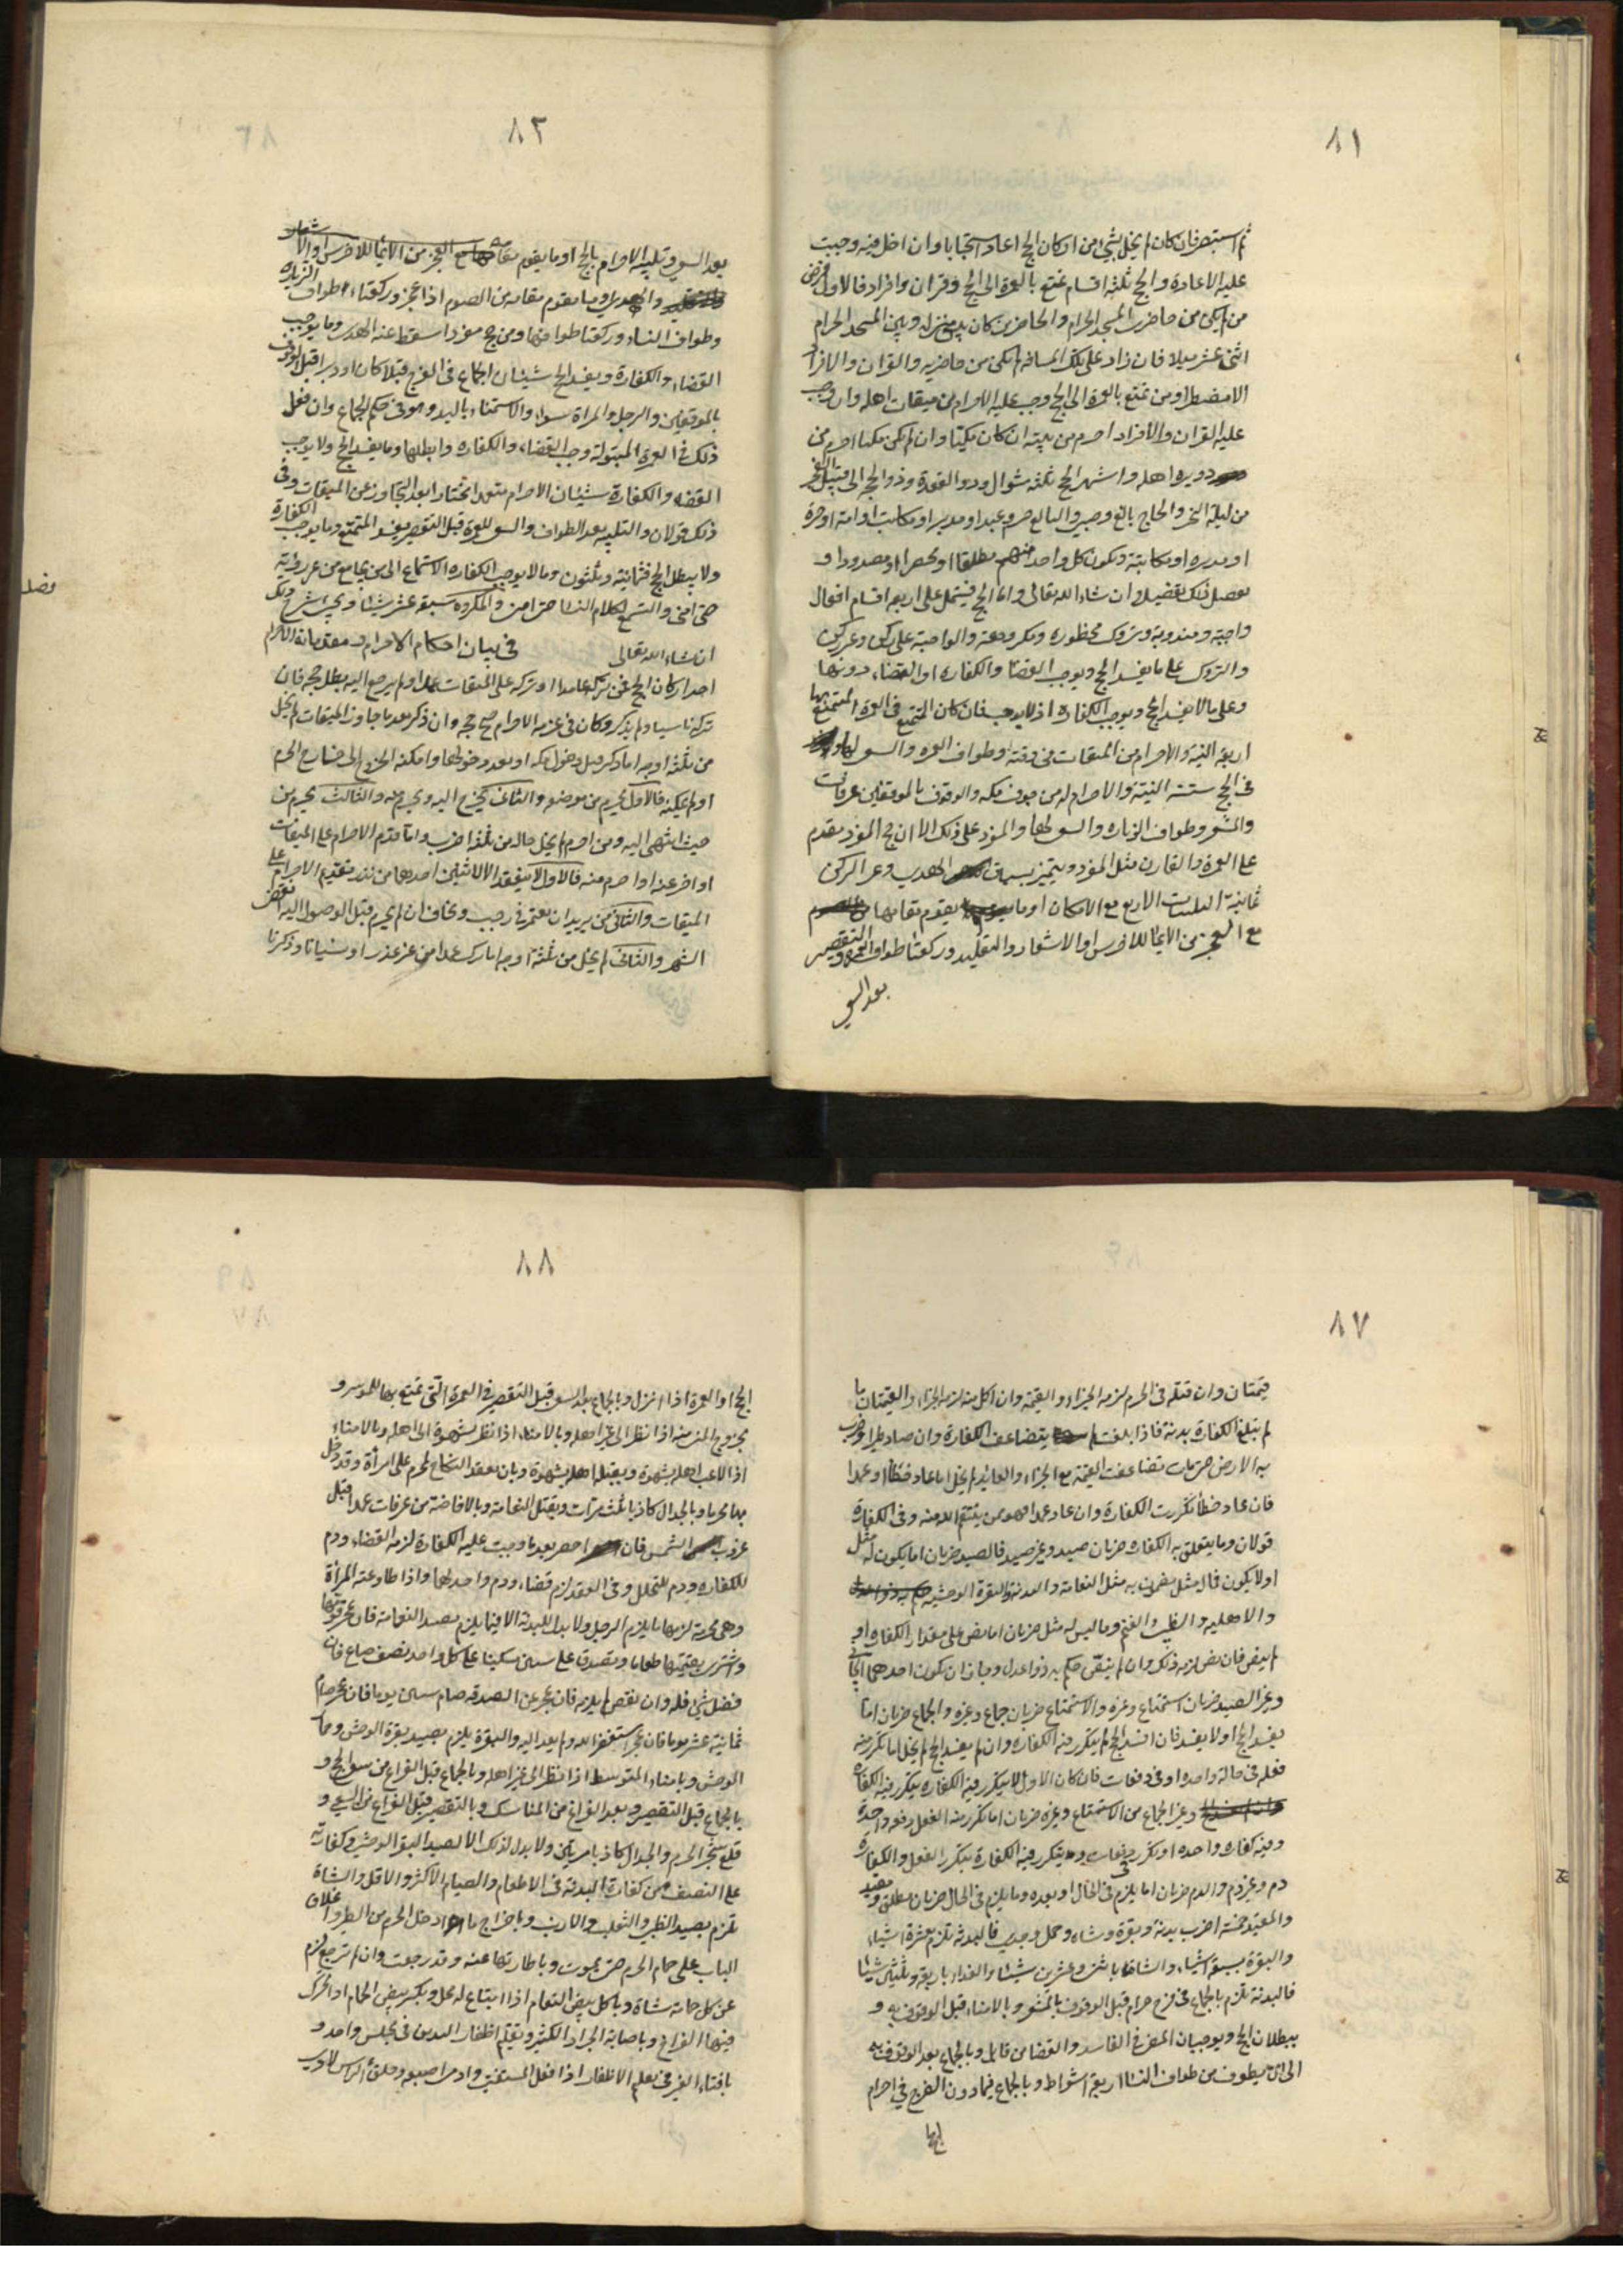 ٨١
ثم استبصر فان كان لم يخل بشيء من اركان الحج اعاد استحبابا وان اخل فيه وجبت
عليه الاعادة والحج ثلثة اقسام تمتع بالعمرة الى الحج وقران وافراد فالاول فرض
من لم يكن من حاضري المسجد الحرام والحاضر من كان بين منزله وبين المسجد الحرام
اثنى عشر ميلا فان زاد على تلك المسافة لم يكن من حاضريه والقران والافراد
الا مضطرا ومن تمتع بالعمرة الى الحج وجب عليه الاحرام من ميقات اهله وان وجب
عليه القران والافراد احرم من بيته ان كان مكيا وان لم يكن مكيا احرم من
دويرة اهله واشهر الحج ثلثة شوال وذو القعدة وذو الحجة الى قبيل الفجر
من ليلة النحر والحاج بالغ وصبي والبالغ حر وعبد او مدبر او مكاتب او امة او حرة
او مدبرة او مكاتبة ويكون كل واحد منهم مطلقا او محصرا او مصدودا و
نفصل ذلك تفصيلا ان شاء الله تعالى واما الحج فيشتمل على اربع اقسام افعال
واجبة ومندوبة وتروك محظورة ومكروهة والواجبة على ركن وغير ركن
والتروك على ما يفسد الحج ويوجب القضا والكفارة او القضاء دونها
وعلى ما لا يفسد الحج ويوجب الكفارة اذ لا يوجب فان كان المتمتع فى العمرة المتمتع بها
اربعة النية والاحرام من الميقات فى وقته وطواف العمرة والسعي لها و
فى الحج ستة النية والاحرام له من جوف مكة والوقوف بالموقفين عرفات
والمشعر وطواف الزيارة والسعي لها والمفرد على ذلك الا ان في المفرد يقدم
على العمرة والقارن مثل المفرد ويتميز بسياق الهدي وغير الركن
ثمانية التلبيات الاربع مع الامكان او ما يقوم مقامها
مع العجز من الايما للاخرس او الاشعار والتقليد وركعتا طواف العمرة والتقصير
بعد السعي
٨٢
بعد السعي وتلبية الاحرام بالحج او ما يقوم مقامها مع العجز من الايما للاخرس او الاشعار
والهدي وما يقوم مقامه من الصوم اذا عجز وركعتا طواف الزيارة
وطواف النساء وركعتا طوافها ومن حج مفردا سقط عنه الهدي وما يوجب
القضاء والكفارة ويفسد الحج شيئان الجماع فى الفرج قبلا كان او دبرا قبل الوقوف
بالموقفين والرجل والمراة سواء والاستمناء باليد وهو فى حكم الجماع وان فعل
ذلك فى العمرة المبتولة وجب القضاء والكفارة وابطلها وما يفسد الحج ولا يوجب
القضاء والكفارة شيئان الاحرام متعمدا مختارا بعد التجاوز عن الميقات وفى
ذلك قولان والتلبية بعد الطواف والسعي للعمرة قبل التقصير يفسد المتمتع وما يوجب الكفارة
ولا يبطل الحج فثمانية وثلثون وما لا يوجب الكفارة الاستماع الى من يجامع من غير رؤية
حتى امنى والتسمع لكلام النسا حتى امنى والمكروه سبعة عشر شيئا ويجي شرح ذلك
ان شاء الله تعالى فى بيان احكام الاحرام ومقدماته الاحرام
فصل
احد اركان الحج فمن تركه عامدا او تركه على الميقات عمدا ولم يرجع اليه بطل حجه فان
تركه ناسيا ولم يذكر وكان فى عزمه الاحرام صح حجه وان ذكر بعد ما جاوز الميقات لم يخل
من ثلثة اوجه اما ذكر قبل دخول مكة او بعد دخولها وامكنه الخروج الى خارج الحرم
او لم يمكنه فالاول يحرم من موضعه والثانى يخرج اليه ويحرم منه والثالث يحرم من
حيث انتهى اليه ومن احرم لم يخل حاله من ثلثة اضرب اما قدم الاحرام على الميقات
او اخر عنه او احرم منه فالاول لا ينعقد الا لاثنين احدهما من نذر تقديم الاحرام على
الميقات والثانى من يريد ان يعتمر فى رجب وخاف ان لم يحرم قبل الوصول اليه انقضى
الشهر والثانى لم يخل من ثلثة اوجه اما ترك عمدا من غير عذر او نسيانا وذكرنا
٨٧
قيمتان وان قتله فى الحرم لزمه الجزاء والقيمة وان اكل منه لزمه الجزاء والقيمتان ما
لم تبلغ الكفارة بدنة فاذا بلغت لم يتضاعف الكفارة وان صاد طيرا وضرب
به الارض حتى مات تضاعفت القيمة مع الجزاء والعايد لم يخل اما عاد خطأ او عمدا
فان عاد خطأ تكررت الكفارة وان عاد عمدا فهو ممن ينتقم الله منه وفى الكفارة
قولان وما يتعلق به الكفارة ضربان صيد وغير صيد فالصيد ضربان اما يكون له مثل
او لا يكون فالمثل مضمون به مثل النعامة والبدنة والبقرة الوحشية
والاهلية والظبي والغنم وما ليس له مثل ضربان اما نص على مقدار الكفارة او
لم ينص فان نص لزمه ذلك وان لم ينص حكم به ذوا عدل وجاز ان يكون احدهما الجاني
وغير الصيد ضربان استمتاع وغيره والاستمتاع ضربان جماع وغيره والجماع ضربان اما
يفسد الحج او لا يفسد فان افسد الحج لم يتكرر فيه الكفارة وان لم يفسد الحج لم يخل اما تكرر منه
فعله فى حالة واحدة او فى دفعات فان كان الاول لا يتكرر فيه الكفارة يتكرر فيه الكفارة
وغير الجماع من الاستمتاع وغيره ضربان اما تكرر منه الفعل دفعة واحدة
وفيه كفارة واحدة او تكرر دفعات ويتكرر فيه الكفارة بتكرر الفعل والكفارة
دم وغير دم والدم ضربان اما يلزم فى الحال او بعده وما يلزم فى الحال ضربان مطلق ومقيد
والمقيد خمسة اضرب بدنة وبقرة وشاة وحمل وجدي فالبدنة تلزم بعشرة اشياء
والبقرة بسبعة اشياء والشاة باثنى وعشرين شيئا والفداء باربعة وثلثين شيئا
فالبدنة تلزم بالجماع فى فرج حرام قبل الوقوف بالمشعر وبالامناء قبل الوقوف به و
يبطلان الحج ويوجبان المضي فى الفاسد والقضا من قابل وبالجماع بعد الوقوف به
الى ان يطوف من طواف النسا اربعة اشواط وبالجماع فيما دون الفرج فى احرام
الحج
٨٨
الحج او العمرة اذا انزل وبالجماع بعد السعي قبل التقصير فى العمرة التى تمتع بها للموسر و
بخروج المني منه اذا نظر الى غير اهله وبالامناء اذا نظر بشهوة الى اهله وبالامناء
اذا لاعب اهله بشهوة وبقبلة اهله بشهوة وبان يعقد النكاح لمحرم على امرأة وقد دخل
بها محرما وبالجدال كاذبا ثلث مرات وبقتل النعامة وبالافاضة من عرفات عمدا قبل
غروب الشمس فان احصر بعد ما وجبت عليه الكفارة لزمه القضاء ودم
للكفارة ودم للتحلل وفى العقد لزم قضاء ودم واحد لها واذا طاوعته المرأة
وهى محرمة لزمها ما يلزم الرجل ولا بدل للبدنة الا فيما يلزم بصيد النعامة فان عجز قومها
واشترى بقيمتها طعاما وتصدق على ستين مسكينا على كل واحد نصف صاع فان
فضل شيء فله وان نقص لم يلزمه فان عجز عن الصدقة صام ستين يوما فان عجز صام
ثمانية عشر يوما فان عجز استغفر الله ولم يعد اليه والبقرة يلزم بصيد بقرة الوحش وحمار
الوحش وبامناء المتوسط اذا نظر الى غير اهله وبالجماع قبل الفراغ من سعي الحج و
بالجماع قبل التقصير وبعد الفراغ من المناسك وبالتقصير قبل الفراغ من السعي و
قلع شجر الحرم والجدال كاذبا مرتين ولا بدل لذلك الا لصيد البقر الوحشي وكفارته
على النصف من كفارة البدنة فى الاطعام والصيام الاكثر والاقل والشاة
تلزم بصيد الظبي والثعلب والارنب وباخراج ما ادخل الحرم من الطير واغلاق
الباب على حمام الحرم حتى يموت وباطارتها عنه وقد رجعت وان لم ترجع لزم
عن كل حمامة شاة وباكل بيض النعام اذا ابتاع له محل وبكسر بيض الحمام اذا تحرك
فيها الفراخ وباصابة الجراد الكثير وبقلم اظفار اليدين فى مجلس واحد و
بافتاء الغير فى تقليم الاظفار اذا فعل المستفتي وادمى اصبعه وحلق الراس لاذى